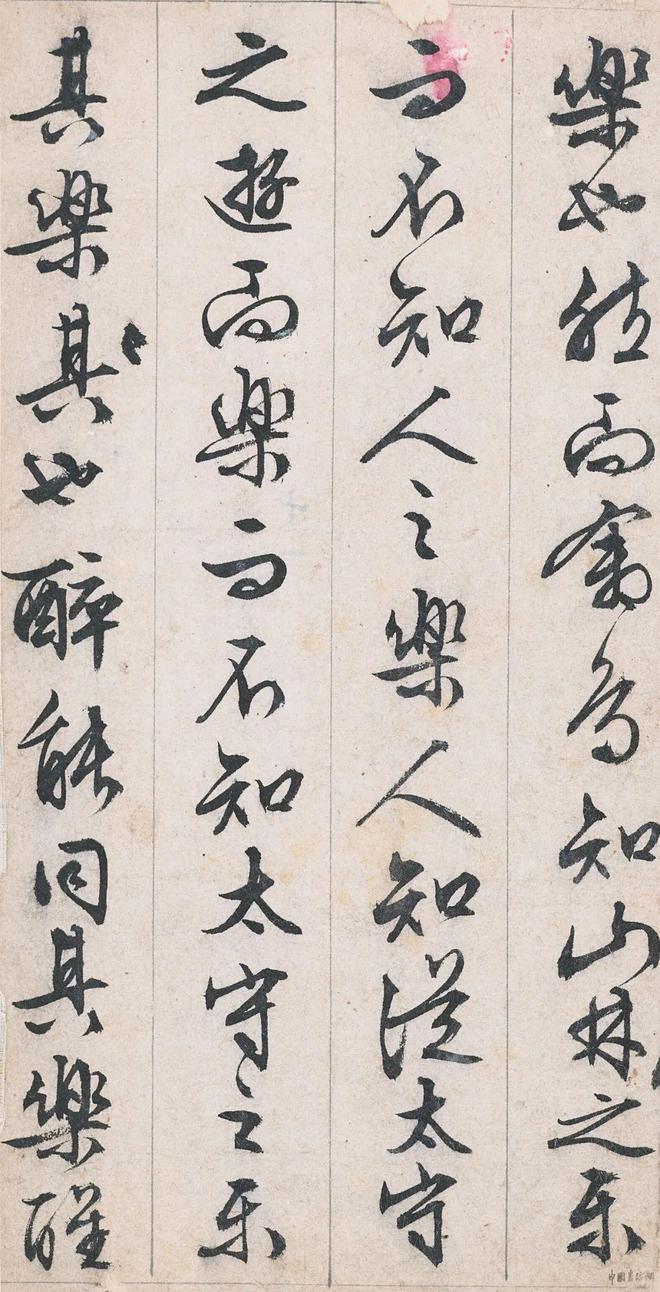 樂也然而禽鳥知山林之乐
而不知人之樂人知從太守
之遊而樂而不知太守之乐
其樂其也醉能同其樂醒
中國書法網